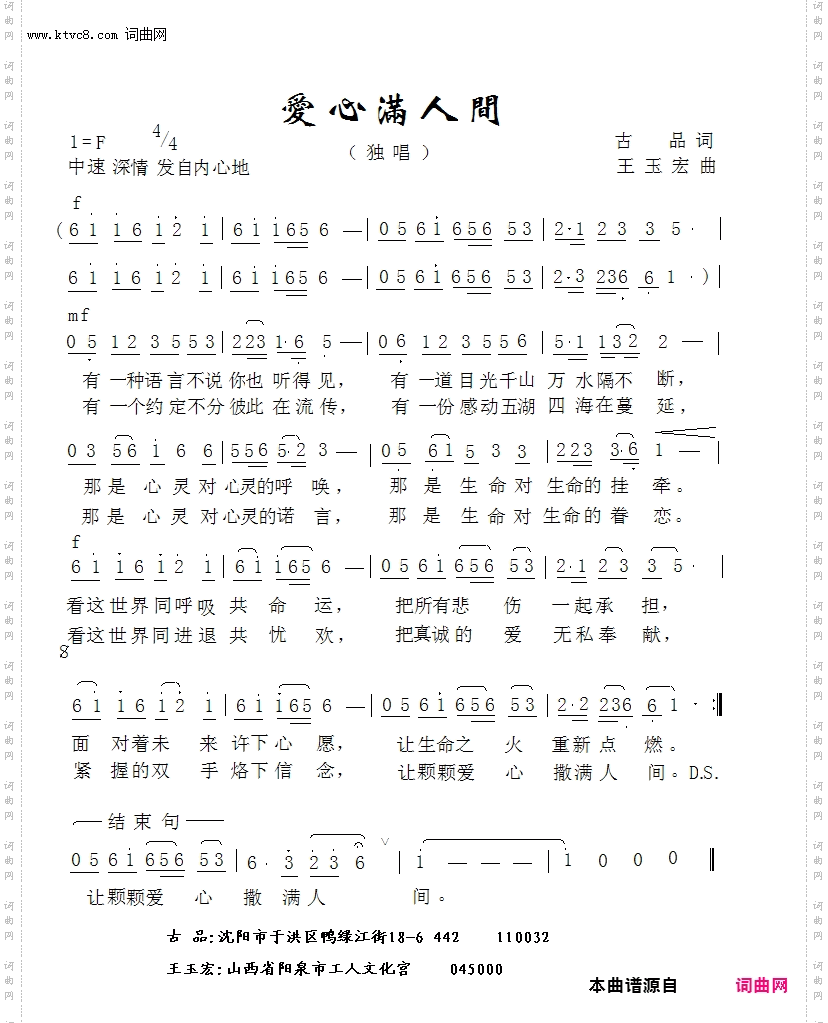 www.ktvc8.com 词曲网
愛心滿人間
1=F 4/4
（独唱）
古 品 词
中速 深情 发自内心地
王 玉 宏 曲
f
(6i i6 i2 i | 6i i65 6 — | 056i 656 53 | 2·1 23 3 5· |
6i i6 i2 i | 6i i65 6 — | 056i 656 53 | 2·3 236 6 1·) |
mf
05 12 35 553 | 223 1·6 5 — | 06 12 35 556 | 5·1 132 2 — |
有 一种语言不说 你也 听得 见， 有 一道 目光千山 万 水隔不 断，
有 一个约定不分 彼此 在流 传， 有 一份 感动五湖 四 海在蔓 延，
03 56 i 6 6 | 556 5·2 3 — | 05 61 5 3 3 | 223 3·6 1 — |
那 是 心 灵 对 心灵的呼 唤， 那 是 生 命 对 生命的 挂 牵。
那 是 心 灵 对 心灵的诺 言， 那 是 生 命 对 生命的 眷 恋。
f
6i i6 i2 i | 6i i65 6 — | 056i 656 53 | 2·1 23 3 5· |
看这 世界 同呼 吸 共 命 运， 把所有悲 伤 一 起承 担，
看这 世界 同进 退 共 忧 欢， 把真诚的 爱 无 私奉 献，
8
6i i6 i2 i | 6i i65 6 — | 056i 656 53 | 2·2 236 6 1· :‖
面 对着未 来 许下 心 愿， 让生命之 火 重新 点 燃。
紧 握的双 手 烙下 信 念， 让颗颗爱 心 撒满 人 间。D.S.
结 束 句
056i 656 53 | 6· 3 23 6 ∨ | i — — — | i 0 0 0 ‖
让颗颗爱 心 撒 满 人 间。
古 品：沈阳市于洪区鸭绿江街18-6 442 110032
王玉宏：山西省阳泉市工人文化宫 045000
本曲谱源自 词曲网
词曲网
词曲网